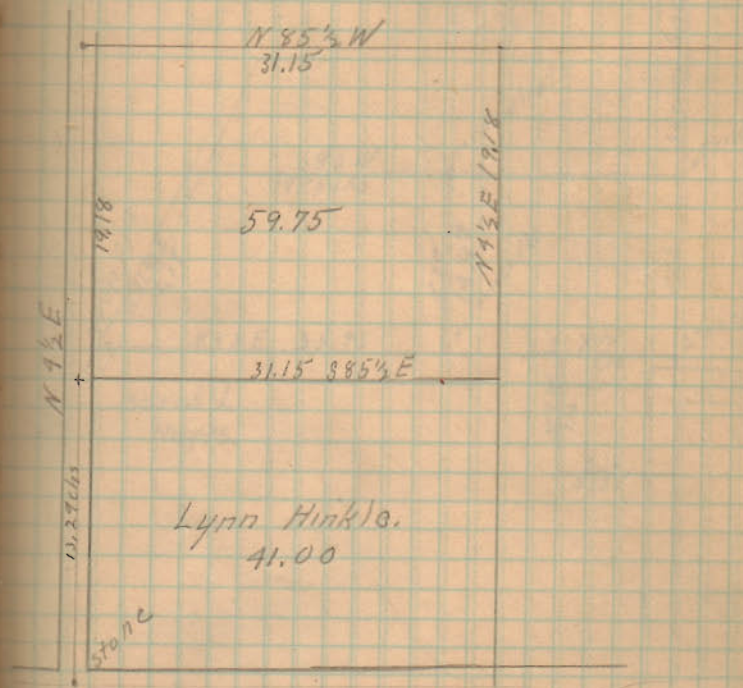 N 85½ W
31.15
N 4½ E 19.18
19.18
59.75
N 4½ E
31.15 S 85½ E
13.29 chs
Lynn Hinkle.
41.00
Stone